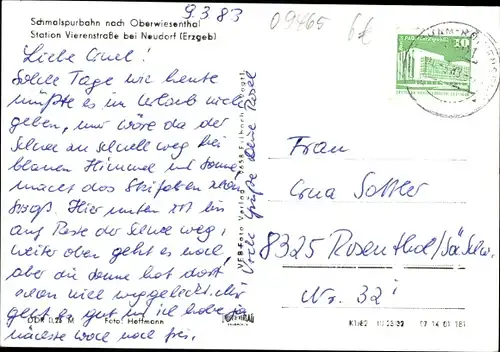 9.3.83
09465
6€
Schmalspurbahn nach Oberwiesenthal
Station Vierenstraße bei Neudorf (Erzgeb)
10
Solche Tage wie heute
müßte es im Urlaub viele
geben, nur wäre da der
Schnee zu schnell weg. bei
blauen Himmel und Sonne
macht das Skifahren
Spaß. Hier unten ist bis
auf Reste der Schnee weg,
weiter oben geht es noch,
aber die Sonne hat dort
schon viel weggeleckt. Mir
geht es gut und ich habe
nächste Woche noch frei.
Viele Grüße Deine
Frau
Erna Sattler
8325 Rosenthal/Sä. Schw.
Nr. 32
DDR 0,20 M Foto: Hoffmann
VEB Foto-Verlag
07 14 01 181